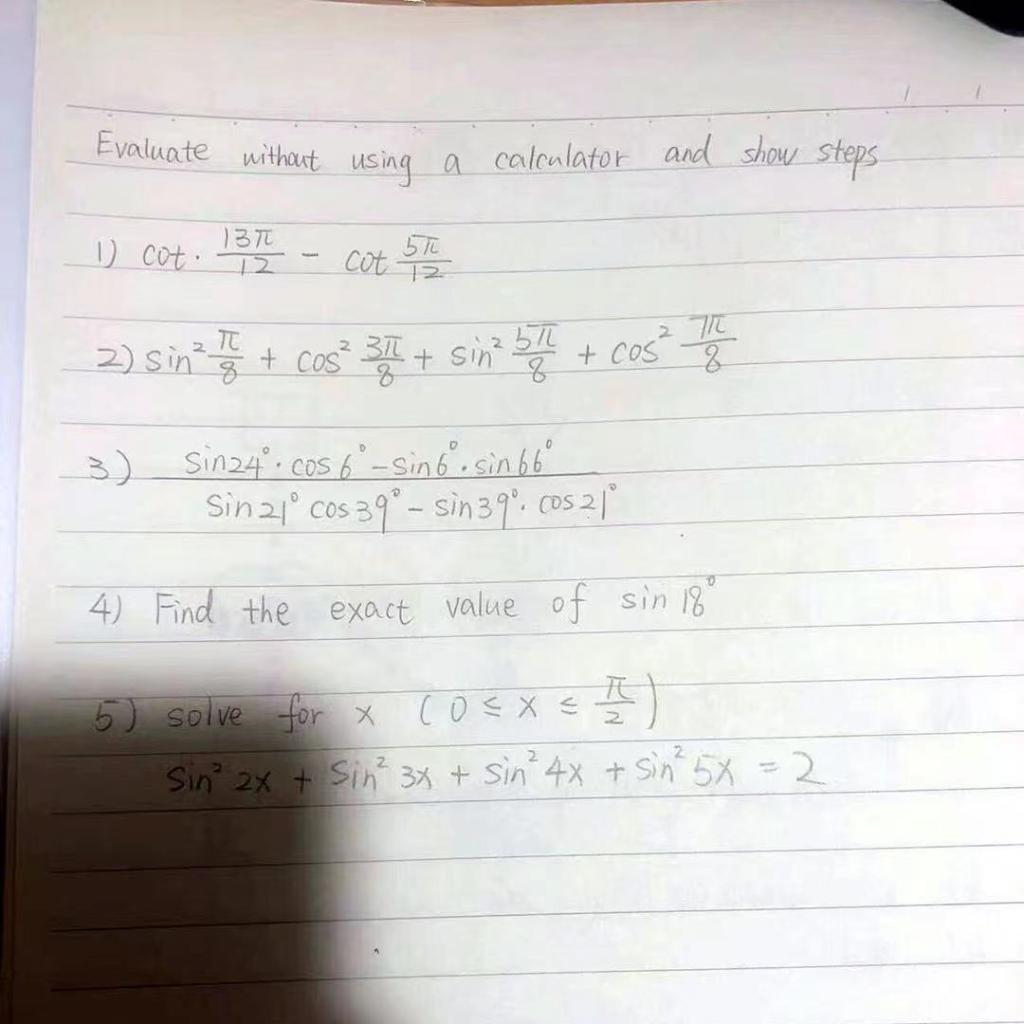 Evaluate without using a calculator and show steps
1) cot · 13π/12 - cot 5π/12
2) sin² π/8 + cos² 3π/8 + sin² 5π/8 + cos² 7π/8
3) (sin24° · cos6° - sin6° · sin66°) / (sin21° cos39° - sin39° · cos21°)
4) Find the exact value of sin 18°
5) solve for x (0 ≤ x ≤ π/2)
sin² 2x + sin² 3x + sin² 4x + sin² 5x = 2